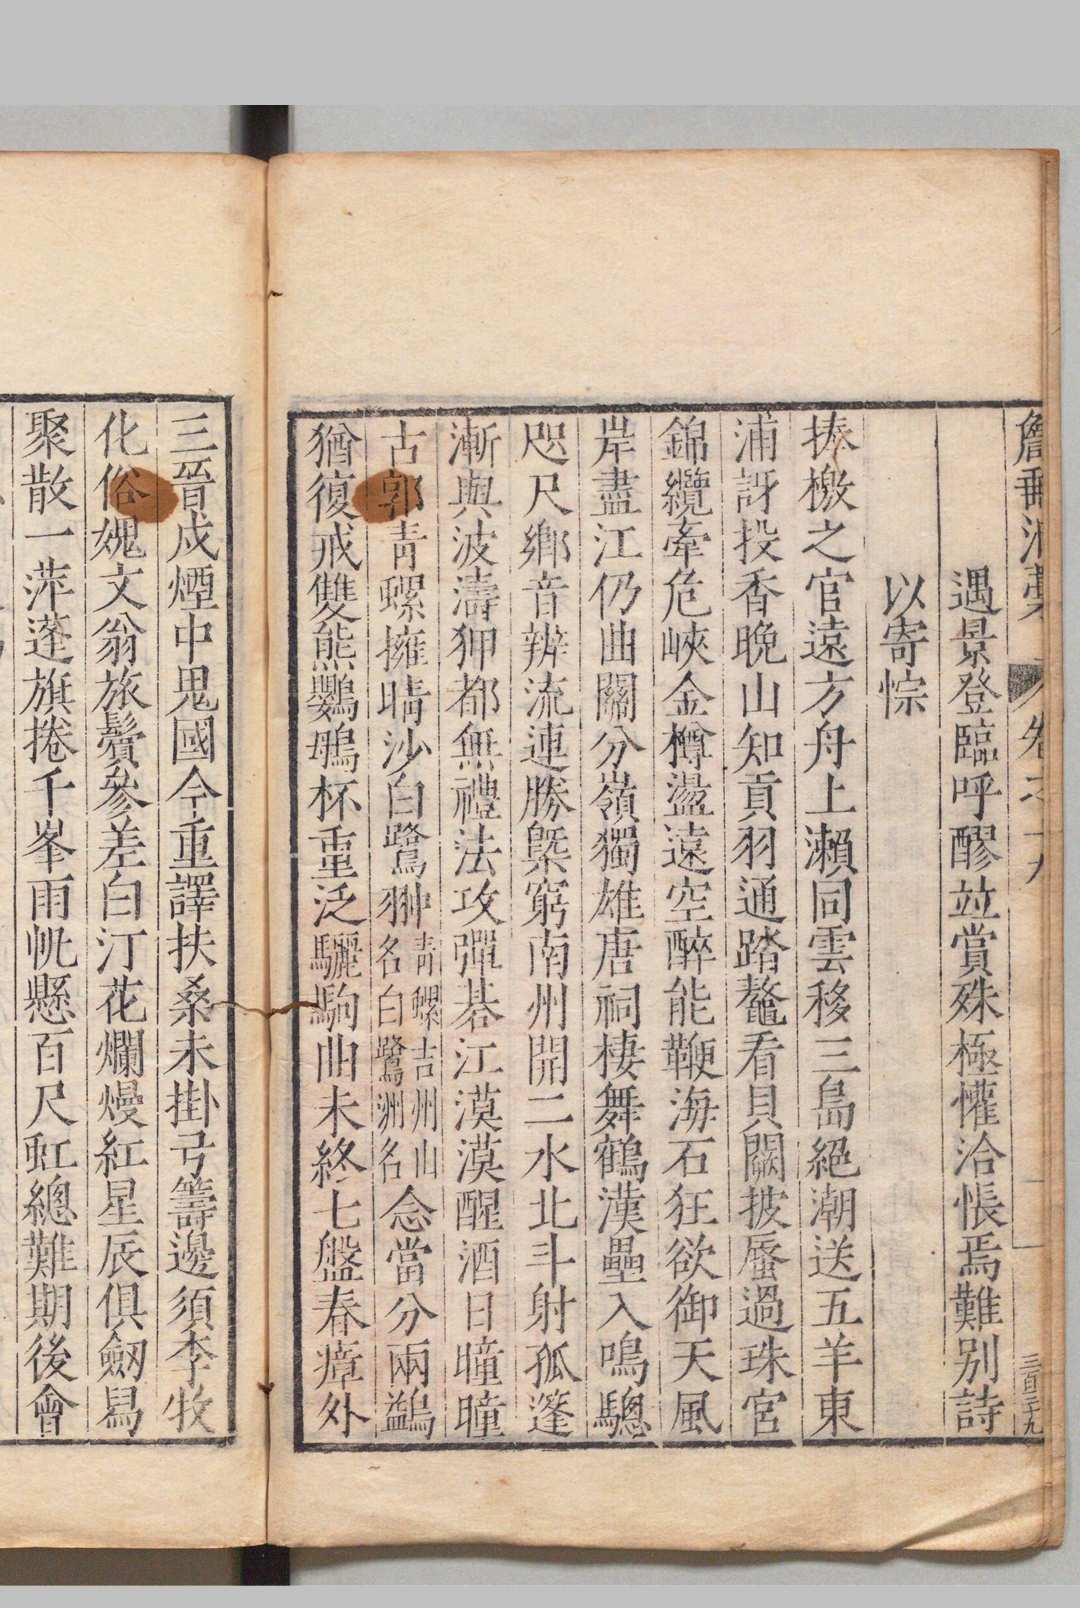 卷之十九
三百三十九
遇景登臨呼醪竝賞殊極懽洽悵焉難別詩
以寄悰
捧檄之官遠方舟上瀨同雲移三島絕潮送五羊東
浦訝投香晚山知貢羽通踏鼇看貝闕披蜃過珠宮
錦纜牽危峽金樽盪遠空醉能鞭海石狂欲御天風
岸盡江仍曲關分嶺獨雄唐祠棲舞鶴漢壘入鳴驄
咫尺鄉音辨流連勝槩窮南州開二水北斗射孤篷
漸與波濤狎都無禮法攻彈棊江漠漠醒酒日曈曈
古郭青螺擁晴沙白鷺翀青螺吉州山名白鷺洲名念當分兩鷁
猶復戒雙熊鸚鵡杯重泛驪駒曲未終七盤春瘴外
三晉戍煙中鬼國今重譯扶桑未掛弓籌邊須李牧
化俗媿文翁旅鬢參差白汀花爛熳紅星辰俱劒舄
聚散一萍蓬旗捲千峯雨帆懸百尺虹總難期後會